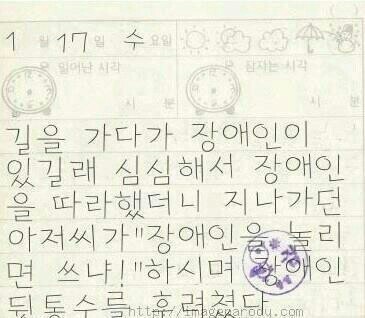 1 월 17 일 수 요일
일어난 시각 잠자는 시각
시 분 시 분
길을 가다가 장애인이
있길래 심심해서 장애인
을 따라했더니 지나가던
아저씨가"장애인을 놀리
면 쓰냐!"하시며 장애인
뒷통수를 후려쳤다
http://imageparody.com